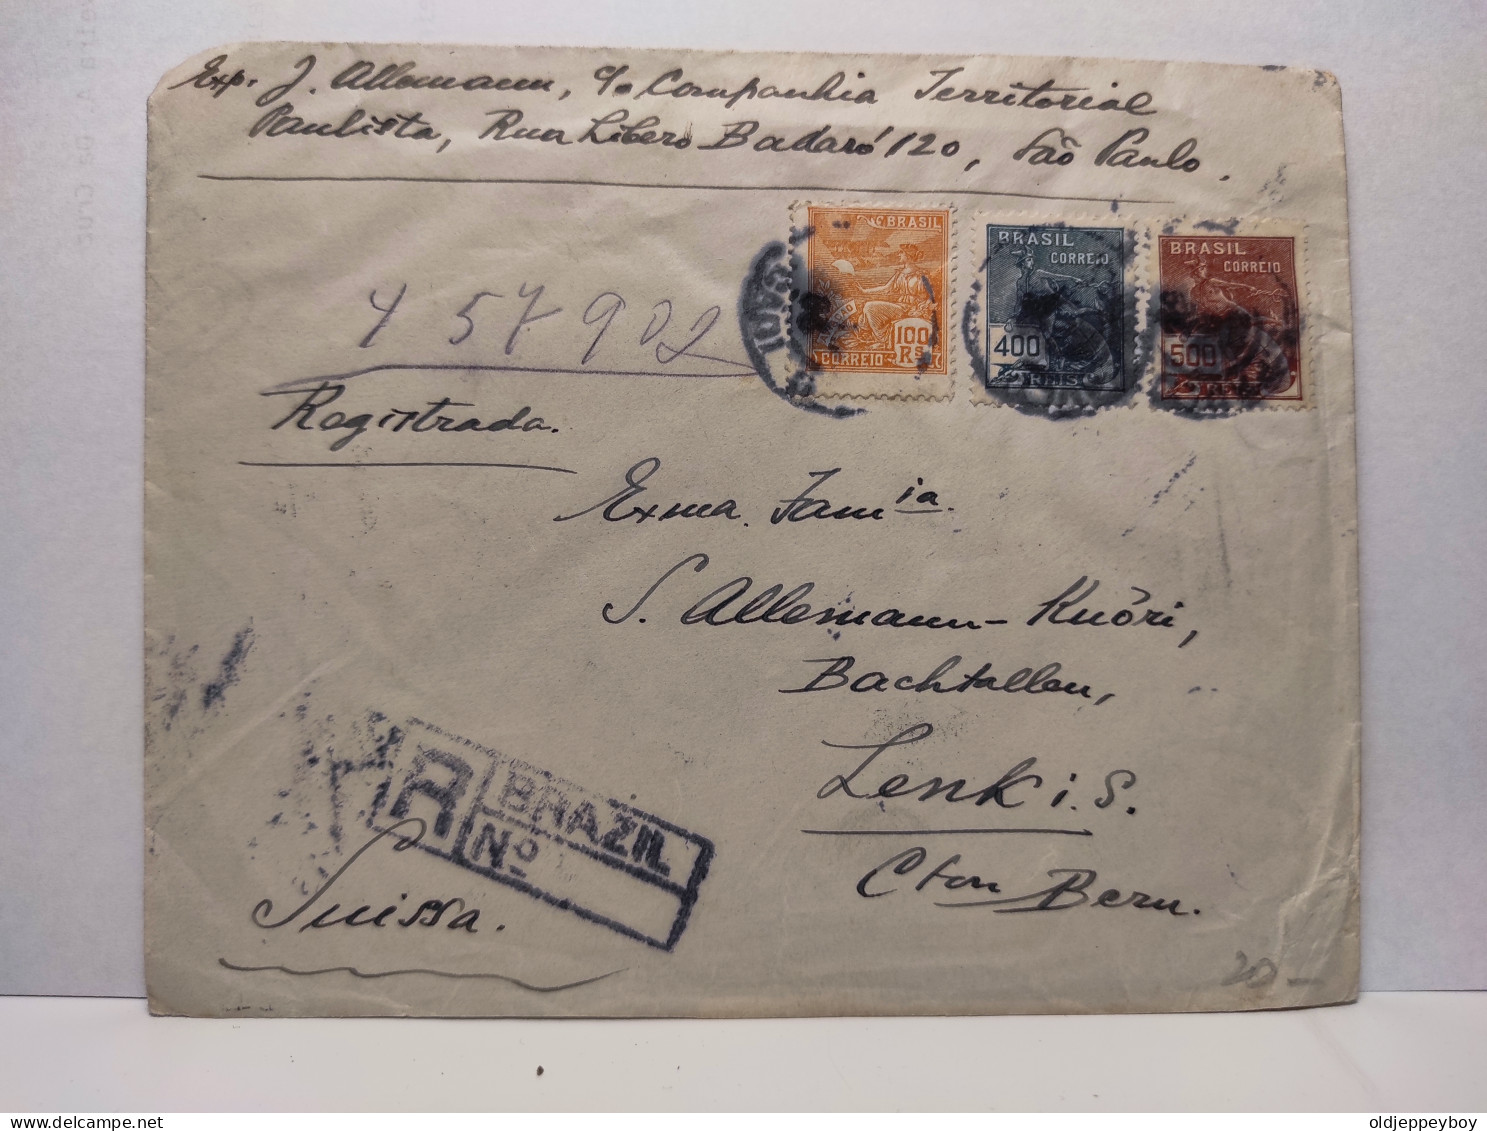 Exp. J. Allemann, c/o Companhia Territorial
Paulista, Rua Libero Badaró 120, São Paulo.
BRASIL
100
Rs
CORREIO
BRASIL
CORREIO
400
REIS
BRASIL
CORREIO
500
REIS
57902
Registrada.
Exma. Famia.
S. Allemann-Knöri,
Bachtallen,
Lenk i. S.
Cton Bern.
R
BRAZIL
Nº
Suissa.
20-
delcampe.net
oldjeppeyboy